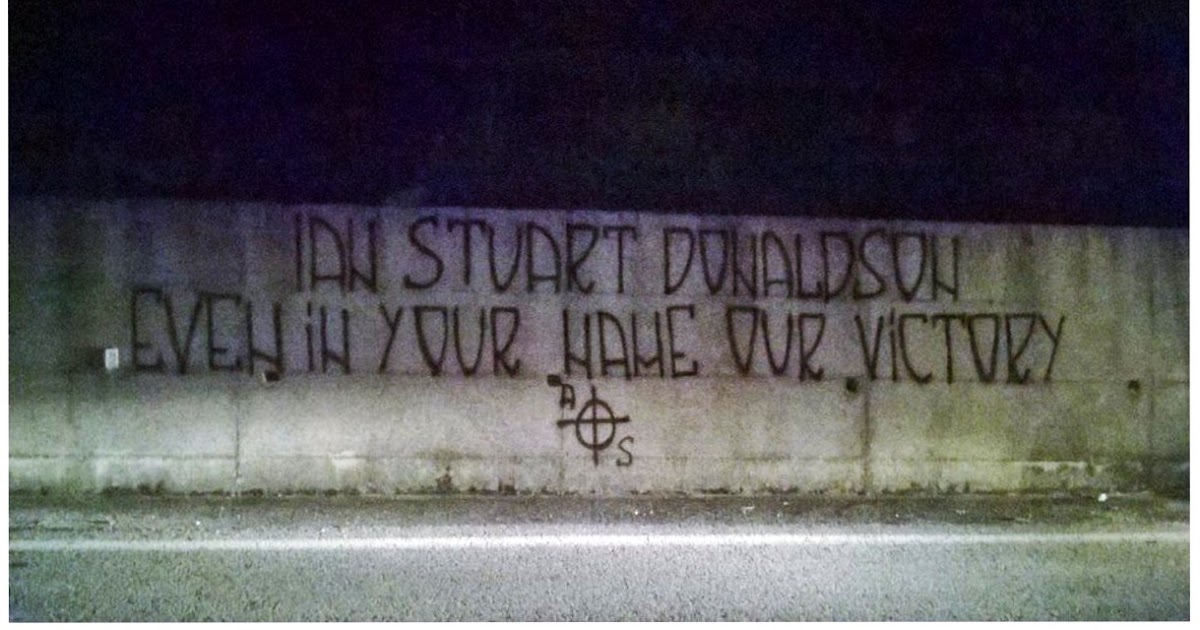 IAN STUART DONALDSON
EVEN iN YOUR NAME OUR ViCTORY
A
S